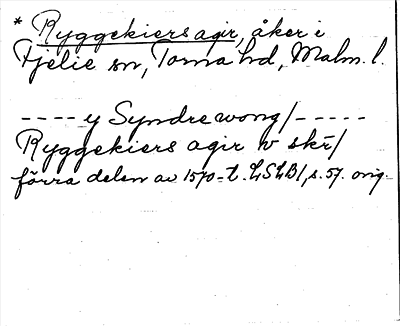 * Ryggekiers agir, åker i
Fjelie sn, Torna hd, Malm. l.
---- y Syndre wong/-----
Ryggekiers agir v skr/
förra delen av 1570-t. LSLB/, s. 57. orig.